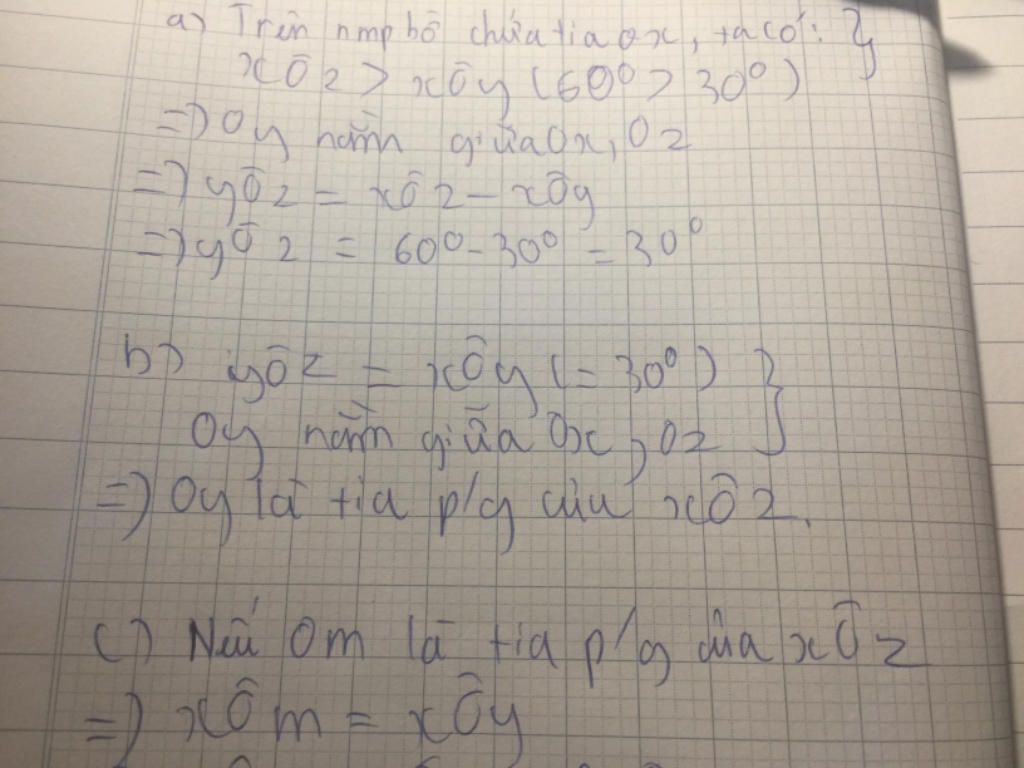 a) Trên nmp bờ chứa tia Ox, ta có: }
xÔz > xÔy (60° > 30°)
=> Oy nằm giữa Ox, Oz
=> yÔz = xÔz - xÔy
=> yÔz = 60° - 30° = 30°
b) yÔz = xÔy (= 30°) }
Oy nằm giữa Ox, Oz
=> Oy là tia p/g của xÔz.
c) Nếu Om là tia p/g của xÔz
=> xÔm = xÔy